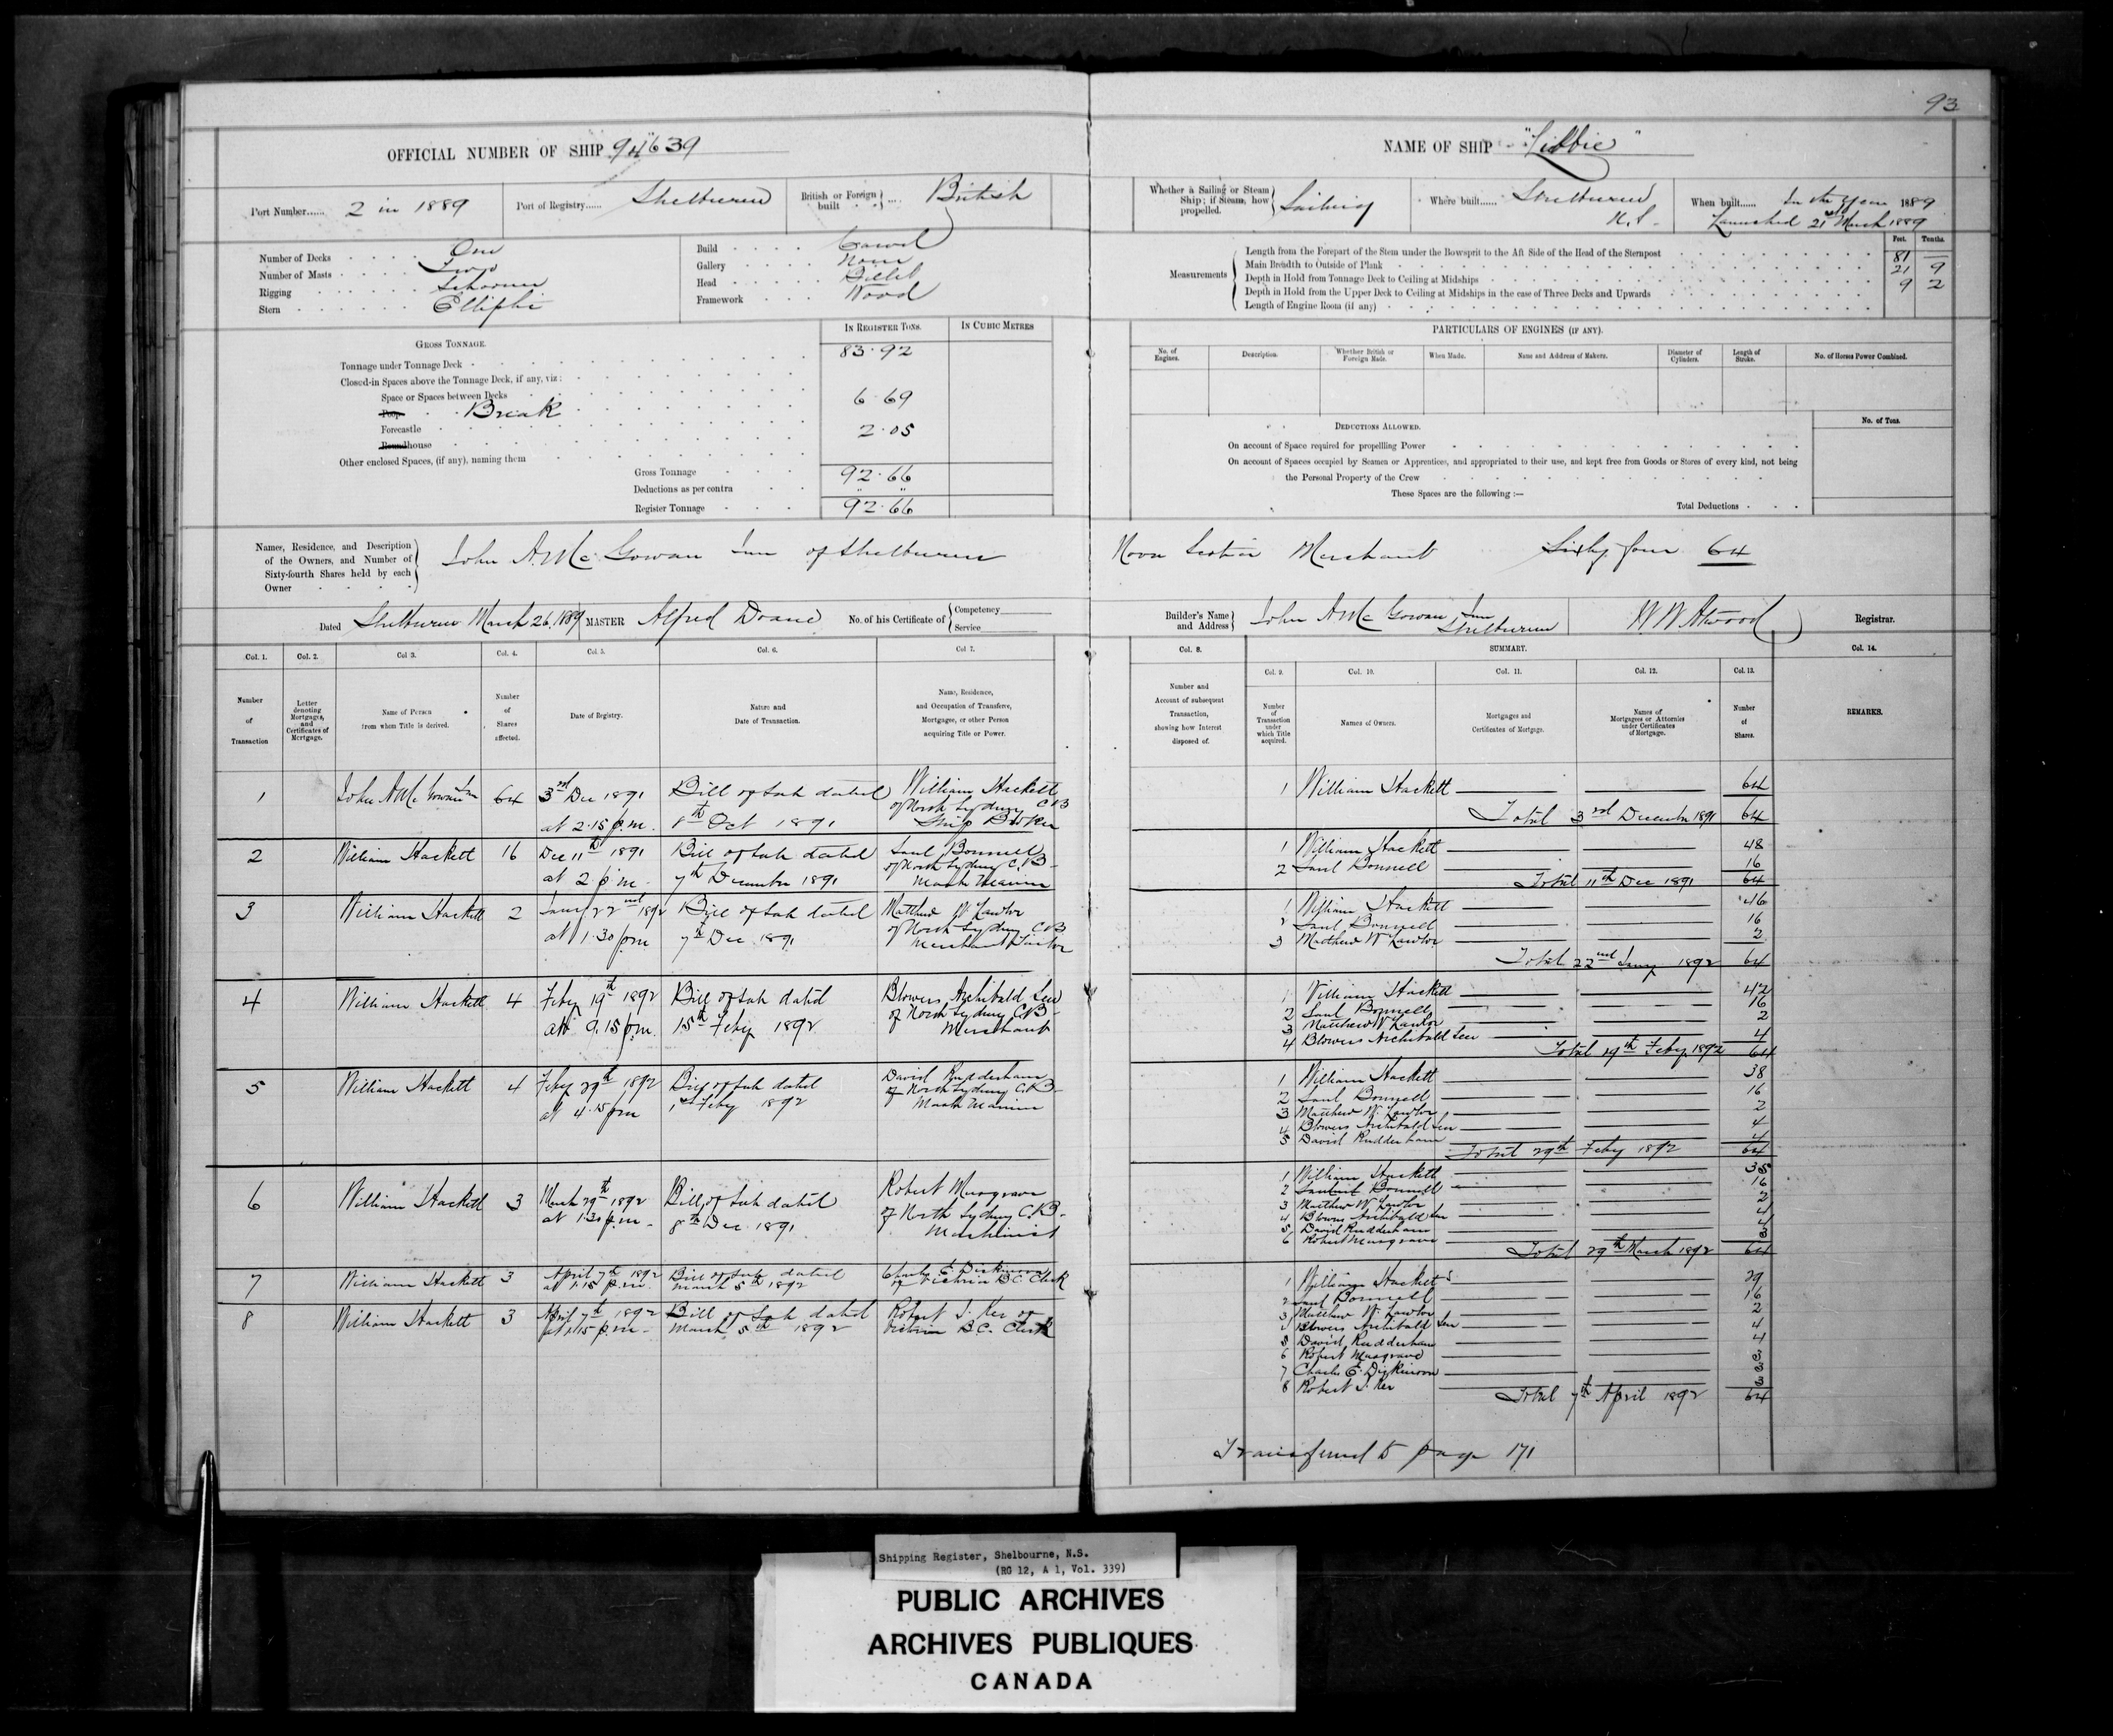 93
OFFICIAL NUMBER OF SHIP 94639
NAME OF SHIP "Libbie"
Port Number...... 2 in 1889
Port of Registry...... Shelburne
British or Foreign built ... British
Whether a Sailing or Steam Ship; if Steam, how propelled. Sailing
Where built...... Shelburne N.S.
When built...... In the year 1889
Launched 21st March 1889
Number of Decks One
Number of Masts Two
Rigging Schooner
Stern Elliptic
Build Carvel
Gallery None
Head Billet
Framework Wood
Measurements
Feet. Tenths.
Length from the Forepart of the Stem under the Bowsprit to the Aft Side of the Head of the Sternpost 81 —
Main Breadth to Outside of Plank 21 9
Depth in Hold from Tonnage Deck to Ceiling at Midships 9 2
Depth in Hold from the Upper Deck to Ceiling at Midships in the case of Three Decks and Upwards
Length of Engine Room (if any)
GROSS TONNAGE.
IN REGISTER TONS. IN CUBIC METRES
Tonnage under Tonnage Deck 83.92
Closed-in Spaces above the Tonnage Deck, if any, viz:
Space or Spaces between Decks
Poop Break 6.69
Forecastle 2.05
Roundhouse
Other enclosed Spaces, (if any), naming them
Gross Tonnage 92.66
Deductions as per contra " "
Register Tonnage 92.66
PARTICULARS OF ENGINES (IF ANY).
No. of Engines. Description. Whether British or Foreign Made. When Made. Name and Address of Makers. Diameter of Cylinders. Length of Stroke. No. of Horses Power Combined.
DEDUCTIONS ALLOWED. No. of Tons.
On account of Space required for propelling Power
On account of Spaces occupied by Seamen or Apprentices, and appropriated to their use, and kept free from Goods or Stores of every kind, not being
the Personal Property of the Crew
These Spaces are the following :—
Total Deductions
Names, Residence, and Description
of the Owners, and Number of
Sixty-fourth Shares held by each
Owner
John A. McGowan Junr of Shelburne Nova Scotia Merchant Sixty four 64
Dated Shelburne March 26. 1889 MASTER Alfred Doane No. of his Certificate of Competency Service
Builder's Name and Address John A McGowan Junr Shelburne W W Atwood Registrar.
Col. 1. Col. 2. Col 3. Col. 4. Col. 5. Col. 6. Col 7.
Number of Transaction
Letter denoting Mortgages, and Certificates of Mortgage.
Name of Person from whom Title is derived.
Number of Shares affected.
Date of Registry.
Nature and Date of Transaction.
Name, Residence, and Occupation of Transferee, Mortgagee, or other Person acquiring Title or Power.
Col. 8. SUMMARY. Col. 14.
Col. 9. Col. 10. Col. 11. Col. 12. Col. 13.
Number and Account of subsequent Transaction, showing how Interest disposed of.
Number of Transaction under which Title acquired.
Names of Owners.
Mortgages and Certificates of Mortgage.
Names of Mortgagees or Attornies under Certificates of Mortgage.
Number of Shares.
REMARKS.
1 John A McGowan Jnr 64 3rd Dec 1891 Bill of Sale dated William Hackett
at 2.15 p.m. 8th Oct 1891 of North Sydney C B
Ship Broker
2 William Hackett 16 Dec 11th 1891 Bill of Sale dated Saul Bonnell
at 2 p.m. 7th December 1891 of North Sydney C.B.
Master Mariner
3 William Hackett 2 Jany 22nd 1892 Bill of Sale dated Matthew W Lawlor
at 1.30 pm 7th Dec 1891 of North Sydney CB
Merchant Tailor
4 William Hackett 4 Feby 19th 1892 Bill of Sale dated Blowers Archibald Sen
at 9.15 pm. 15th Feby 1892 of North Sydney C.B.
Merchant
5 William Hackett 4 Feby 29th 1892 Bill of Sale dated David Rudderham
at 4.15 pm 1st Feby 1892 of North Sydney C.B.
Master Mariner
6 William Hackett 3 March 29th 1892 Bill of Sale dated Robert Musgrave
at 1.30 p.m. 8th Dec 1891 of North Sydney C.B.
Machinist
7 William Hackett 3 April 7th 1892 Bill of Sale dated Charles E. Dickinson
at 1.15 p.m. March 5th 1892 of Victoria B.C. Clerk
8 William Hackett 3 April 7th 1892 Bill of Sale dated Robert J. Ker of
at 1.15 p.m. March 5th 1892 Victoria B.C. Clerk
1 William Hackett 64
Total 3rd December 1891 64
1 William Hackett 48
2 Saul Bonnell 16
Total 11th Dec 1891 64
1 William Hackett 46
2 Saul Bonnell 16
3 Matthew W Lawlor 2
Total 22nd Jany 1892 64
1 William Hackett 42
2 Saul Bonnell 16
3 Matthew W Lawlor 2
4 Blowers Archibald Sen 4
Total 19th Feby 1892 64
1 William Hackett 38
2 Saul Bonnell 16
3 Matthew W. Lawlor 2
4 Blowers Archibald Sen 4
5 David Rudderham 4
Total 29th Feby 1892 64
1 William Hackett 35
2 Bonnell 16
3 Matthew W Lawlor 2
4 Blowers Archibald Sen 4
5 David Rudderham 4
6 Robert Musgrave 3
Total 29th March 1892 64
1 William Hackett 29
2 Saul Bonnell 16
3 Matthew W. Lawlor 2
4 Blowers Archibald Sen 4
5 David Rudderham 4
6 Robert Musgrave 3
7 Charles E. Dickinson 3
8 Robert J. Ker 3
Total 7th April 1892 64
Transferred to page 171
Shipping Register, Shelbourne, N.S.
(RG 12, A 1, Vol. 339)
PUBLIC ARCHIVES
ARCHIVES PUBLIQUES
CANADA